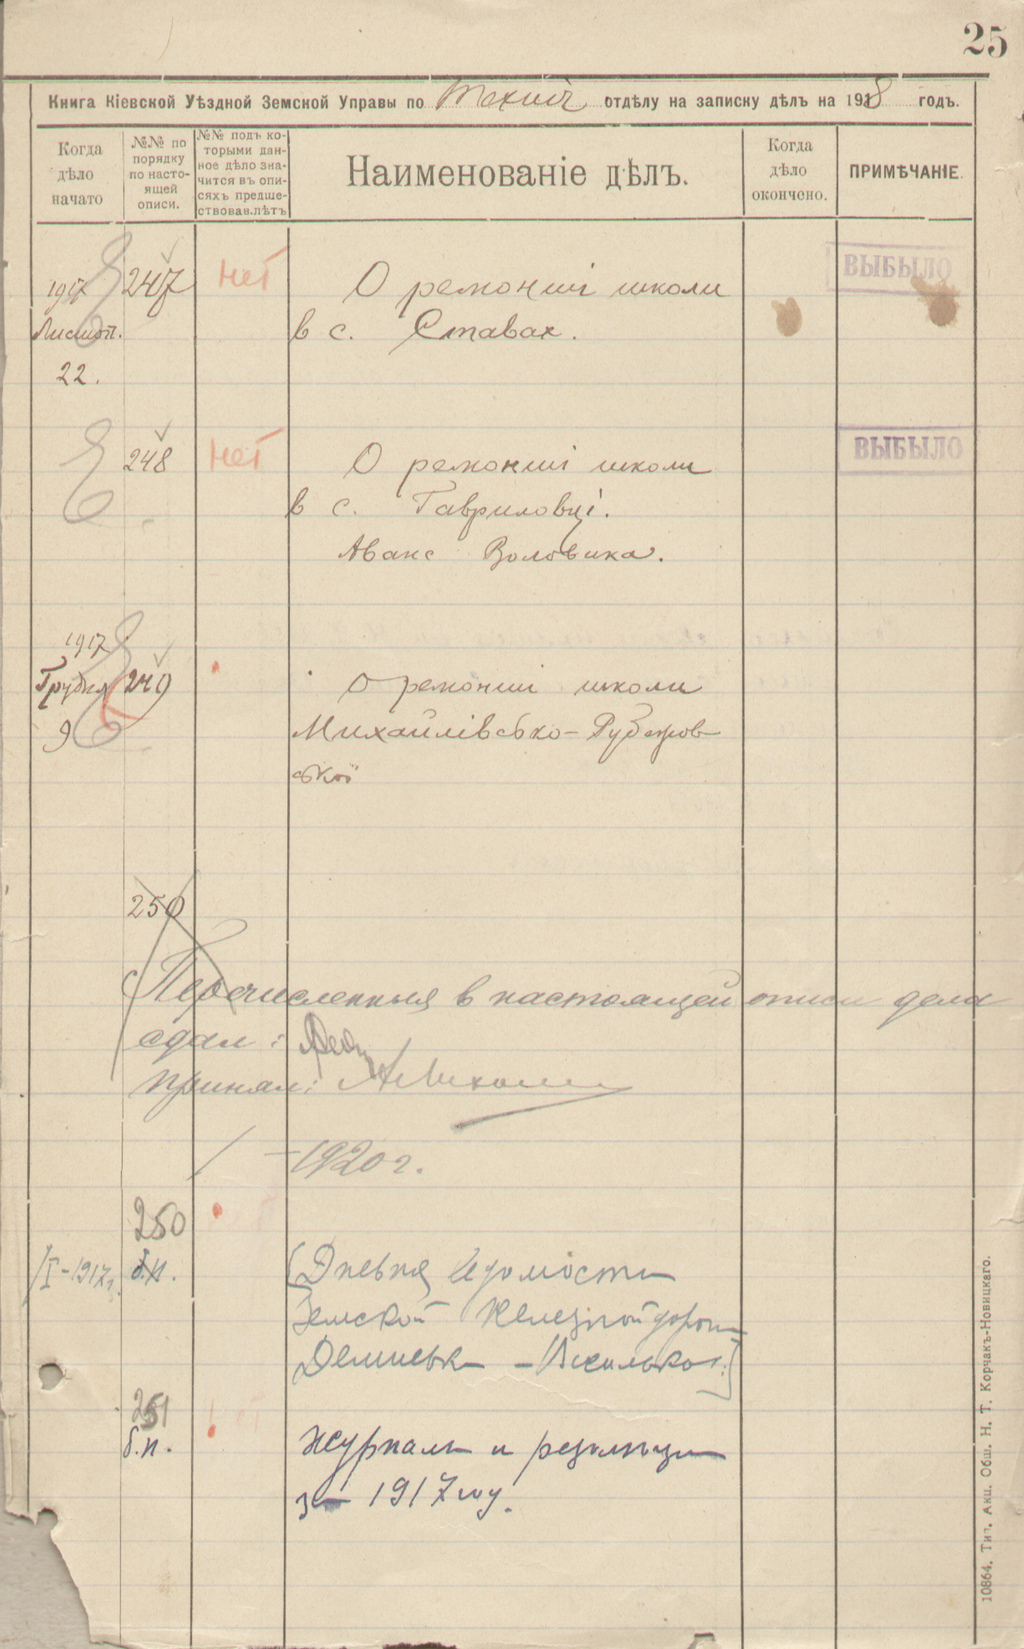 25
Книга Кіевской Уѣздной Земской Управы по Техніч отдѣлу на записку дѣлъ на 1918 годъ.
Когда дѣло начато
№№ по порядку по настоящей описи.
№№ подъ которыми данное дѣло значится въ описяхъ предшествовав.лѣтъ
Наименованіе дѣлъ.
Когда дѣло окончено.
ПРИМѢЧАНІЕ.
1917 247 нет О ремонті школи ВЫБЫЛО
Листоп. в с. Ставах.
22.
248 нет О ремонті школи ВЫБЫЛО
в с. Гавриловці.
Аванс Воловика.
1917
Грудня 249 О ремонті школи
9 Михайлівсько-Рубежов-
ської
250
Перечисленныя в настоящей описи дела
сдал:
принял:
1920 г.
250
/I-1917г. б.н. Дневня Ведомости
Земской Железной дороги
Демиевка - Васильков.
251
б.н. Журналы и резолюции
за 1917 году.
10864. Тип. Акц. Общ. Н. Т. Корчакъ-Новицкаго.